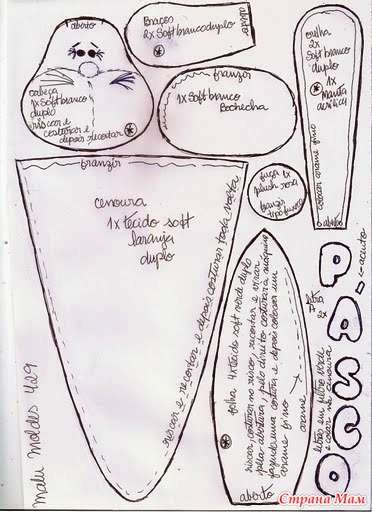 aberto
cabeça
1x Soft branco
duplo
riscar e
costurar e
depois recortar
Braços
2x Soft branco duplo
aberto
franzir
1x Soft branco
Bochecha
orelha
2x
Soft branco
duplo
1x
Manta
acrílica
colocar arame fino
aberto
franzir
cenoura
1x tecido soft
laranja
duplo
riscar e recortar e depois costurar toda volta
fuça 1x
plush rosa
franzir
tipo fuxico
folha 4x tecido soft verde duplo
riscar, costurar no risco, recortar e virar
pela abertura, pelo direito costurar à máquina
fazendo uma costura e depois colocar um
arame fino
arame
aberto
PÁSCOA
acento
letra
A 2x
letras em feltro verde
e colar na cenoura
malu moldes 429
Страна Мам